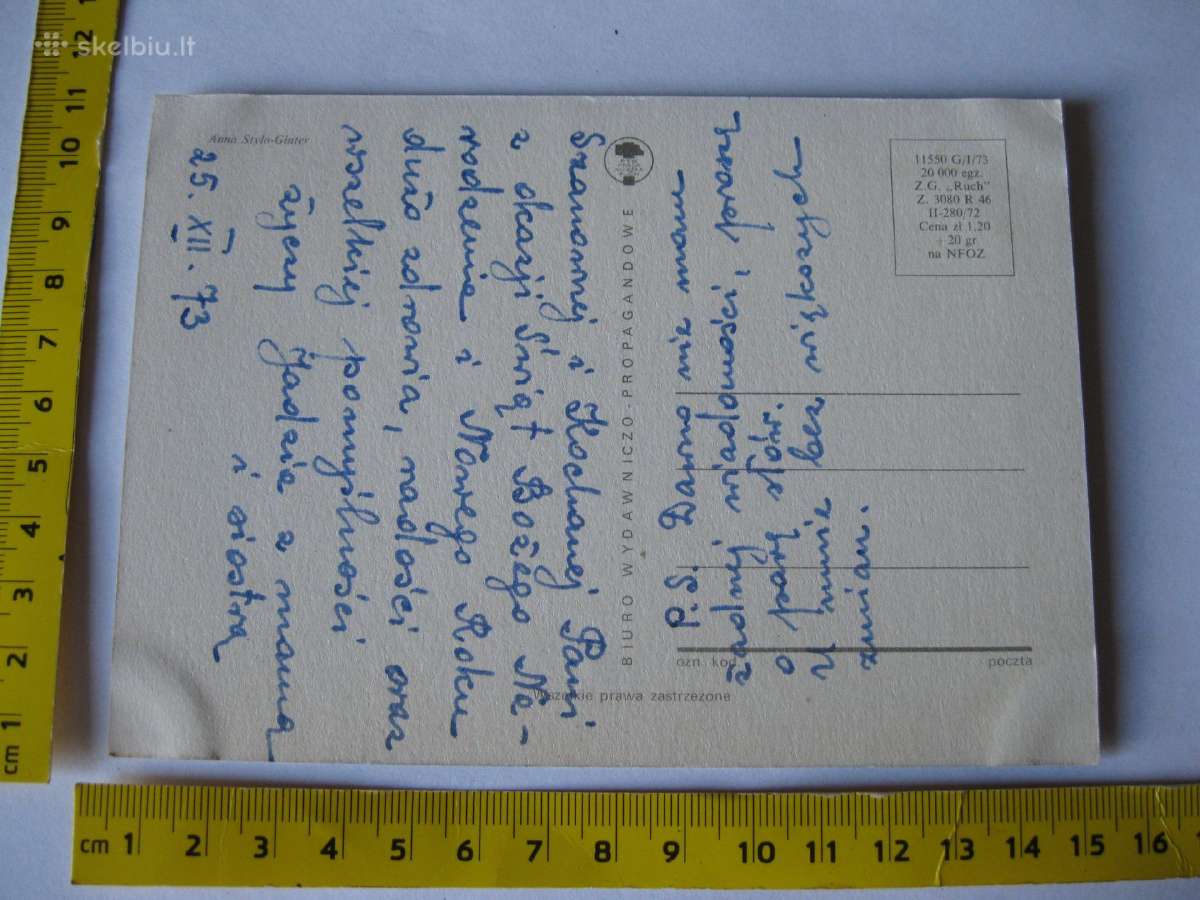 skelbiu.lt
Anna Stylo-Ginter
25. XII. 73
Szanownej i Kochanej Pani
z okazji Świąt Bożego Na-
rodzenia i Nowego Roku
dużo zdrowia, radości oraz
wszelkiej pomyślności
życzy Jadzia z mamą
i siostrą
BIURO WYDAWNICZO-PROPAGANDOWE
P.S. Dawno nie mam
żadnej wiadomości, proszę
o parę słów.
U mnie bez większych
zmian.
11550 G/I/73
20 000 egz.
Z.G. „Ruch"
Z. 3080 R 46
II-280/72
Cena zł 1.20
+ 20 gr
na NFOZ
ozn. kod.
poczta
Wszelkie prawa zastrzeżone
cm 1 2 3 4 5 6 7 8 9 10 11 12
cm 1 2 3 4 5 6 7 8 9 10 11 12 13 14 15 16